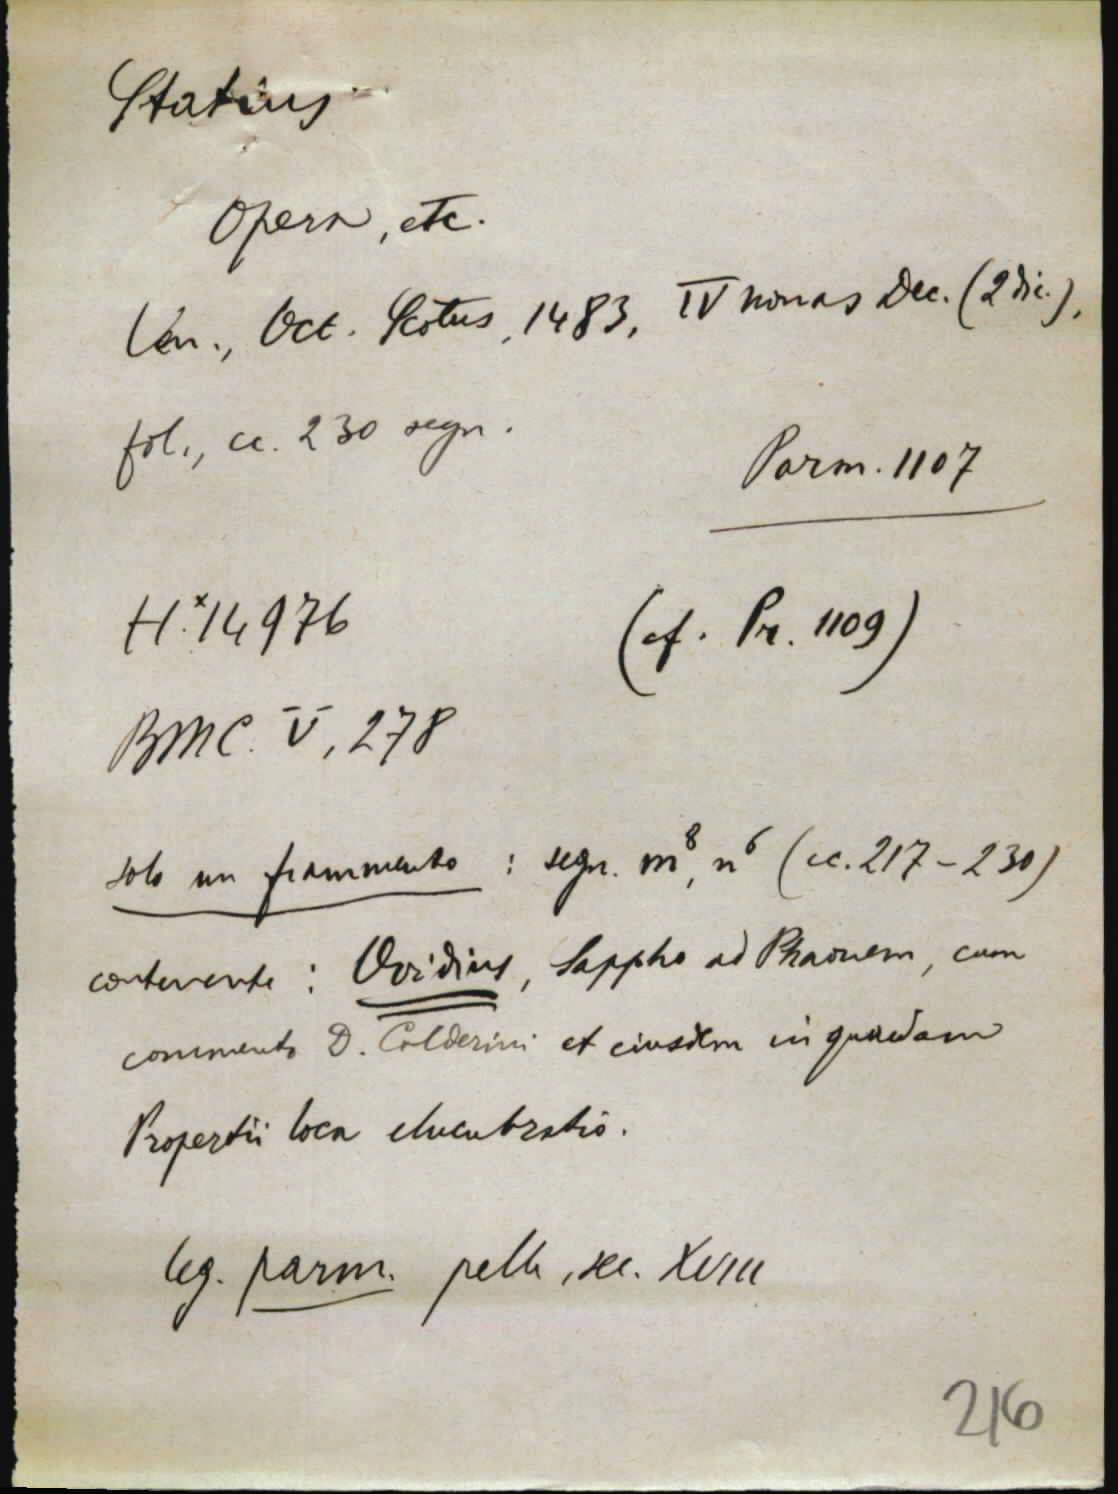 Statius
Opera, etc.
Ven., Oct. Scotus, 1483, IV nonas Dec. (2 dic.),
fol., cc. 230 segn.
Parm. 1107
H.x14976
(cf. Pr. 1109)
BMC. V, 278
solo un frammento : segn. m8, n6 (cc. 217-230)
contenente : Ovidius, Sappho ad Phaonem, cum
commento D. Calderini et eiusdem in quaedam
Propertii loca elucubratio.
leg. parm. pelle, sec. XVIII
216